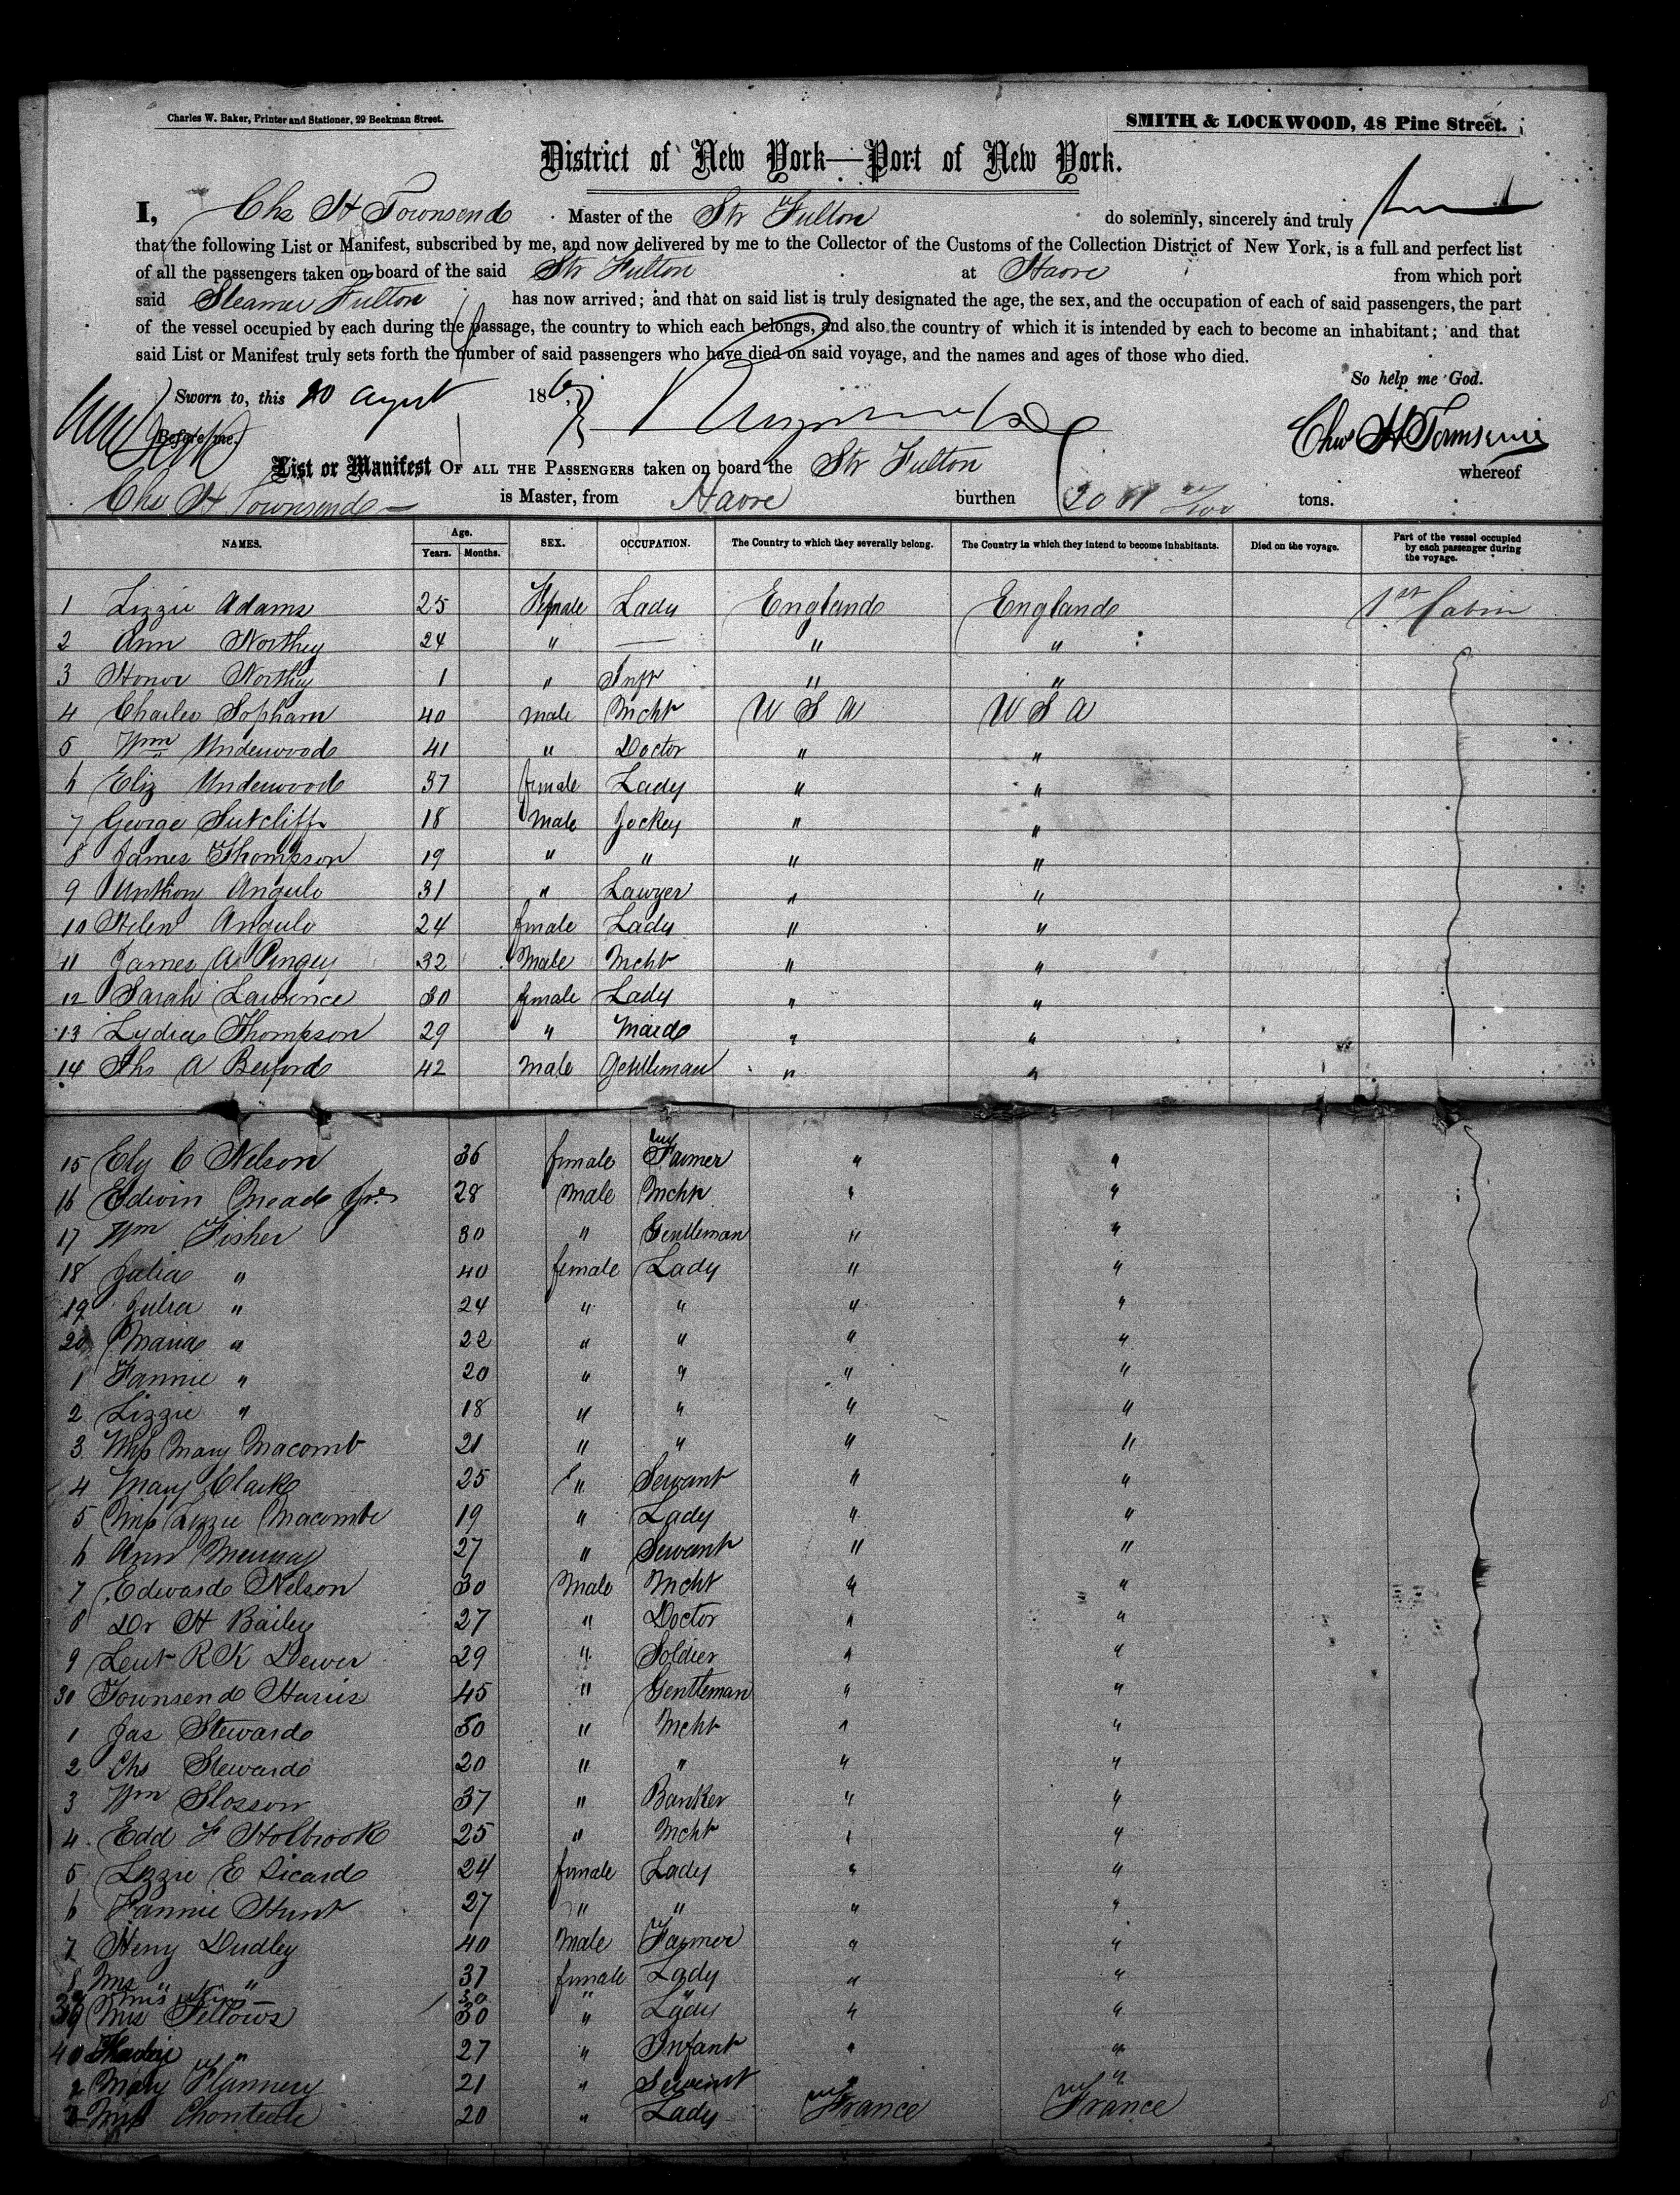 Charles W. Baker, Printer and Stationer, 29 Beekman Street.
SMITH & LOCKWOOD, 48 Pine Street.
District of New York—Port of New York.
I, Chs H Townsend Master of the Str Fulton do solemnly, sincerely and truly
that the following List or Manifest, subscribed by me, and now delivered by me to the Collector of the Customs of the Collection District of New York, is a full and perfect list
of all the passengers taken on board of the said Str Fulton at Havre from which port
said Steamer Fulton has now arrived; and that on said list is truly designated the age, the sex, and the occupation of each of said passengers, the part
of the vessel occupied by each during the passage, the country to which each belongs, and also the country of which it is intended by each to become an inhabitant; and that
said List or Manifest truly sets forth the number of said passengers who have died on said voyage, and the names and ages of those who died.
So help me God.
Sworn to, this 20 August 186
Before me. Chas H Townsend
List or Manifest OF ALL THE PASSENGERS taken on board the Str Fulton whereof
Chs H Townsend is Master, from Havre burthen tons.
NAMES. Age. Years. Months. SEX. OCCUPATION. The Country to which they severally belong. The Country in which they intend to become inhabitants. Died on the voyage. Part of the vessel occupied by each passenger during the voyage.
1 Lizzie Adams 25 Female Lady England England 1st Cabin
2 Ann Northey 24 " — " "
3 Honor Northey 1 " Inft " "
4 Charles Sopham 40 male Mcht U S A U S A
5 Wm Underwood 41 " Doctor " "
6 Eliz Underwood 37 female Lady " "
7 George Sutcliff 18 Male Jockey " "
8 James Thompson 19 " " " "
9 Anthony Angulo 31 " Lawyer " "
10 Helen Angulo 24 female Lady " "
11 James A Pingey 32 Male Mcht " "
12 Sarah Lawrence 30 female Lady " "
13 Lydia Thompson 29 " Maid " "
14 Ths A Bexford 42 male Gentleman " "
15 Ely C Nelson 36 female Farmer " "
16 Edwin Mead Jr. 28 Male Mcht " "
17 Wm Fisher 30 " Gentleman " "
18 Julia " 40 female Lady " "
19 Julia " 24 " " " "
20 Maria " 22 " " " "
1 Fannie " 20 " " " "
2 Lizzie " 18 " " " "
3 Miss Mary Macomb 21 " " " "
4 Mary Clark 25 " Servant " "
5 Miss Lizzie Macomb 19 " Lady " "
6 Ann Murray 27 " Servant " "
7 Edward Nelson 30 Male Mcht " "
8 Dr H Bailey 27 " Doctor " "
9 Leut R K Dewer 29 " Soldier " "
30 Townsend Harris 45 " Gentleman " "
1 Jas Steward 50 " Mcht " "
2 Chs Steward 20 " " " "
3 Wm Slosson 37 " Banker " "
4 Edd F Holbrook 25 " Mcht " "
5 Lizzie E Sicard 24 female Lady " "
6 Fannie Hunt 27 " " " "
7 Henry Dudley 40 Male Farmer " "
8 Mrs " 37 female Lady " "
39 Mrs Fellows 30 " Lady " "
40 " 27 " Infant " "
Mary Flannery 21 " Servant " "
20 " Lady France France